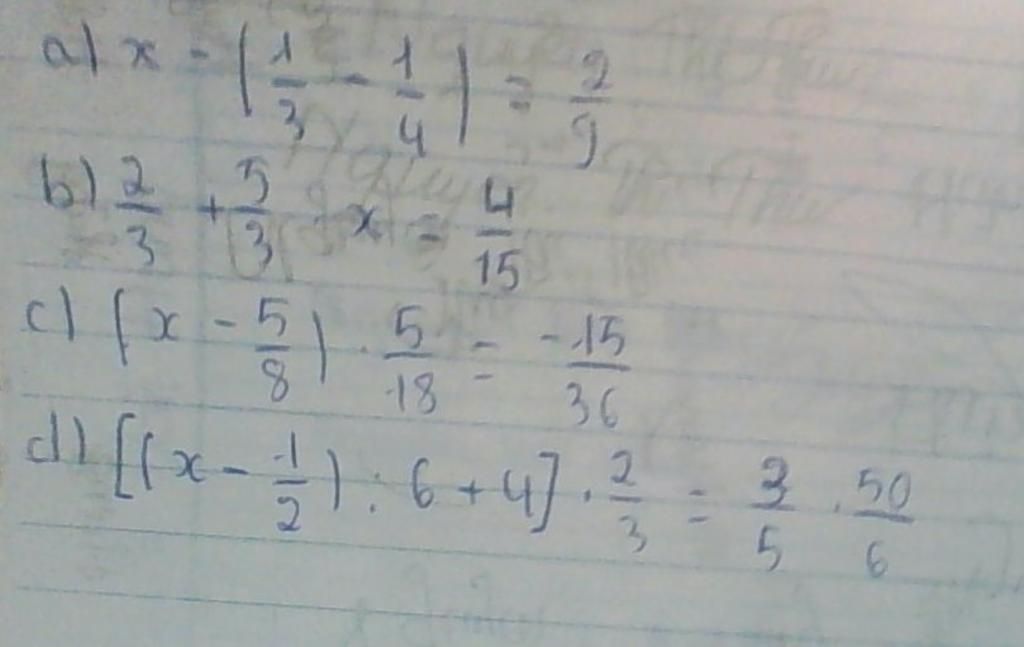 a) x - (1/3 - 1/4) = 2/9
b) 2/3 + 5/3 · x = 4/15
c) (x - 5/8) · 5/18 = -15/36
d) [(x - 1/2) : 6 + 4] · 2/3 = 3/5 · 50/6